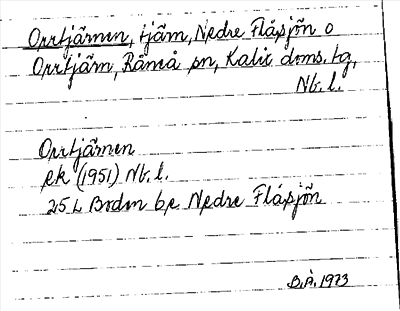 Orrtjärnen, tjärn, Nedre Flåsjön o
Orrtjärn, Råneå sn, Kalix doms. tg,
Nb. l.
Orrtjärnen
ek (1951) Nb. l.
25 L Boden be Nedre Flåsjön
B.Å. 1973